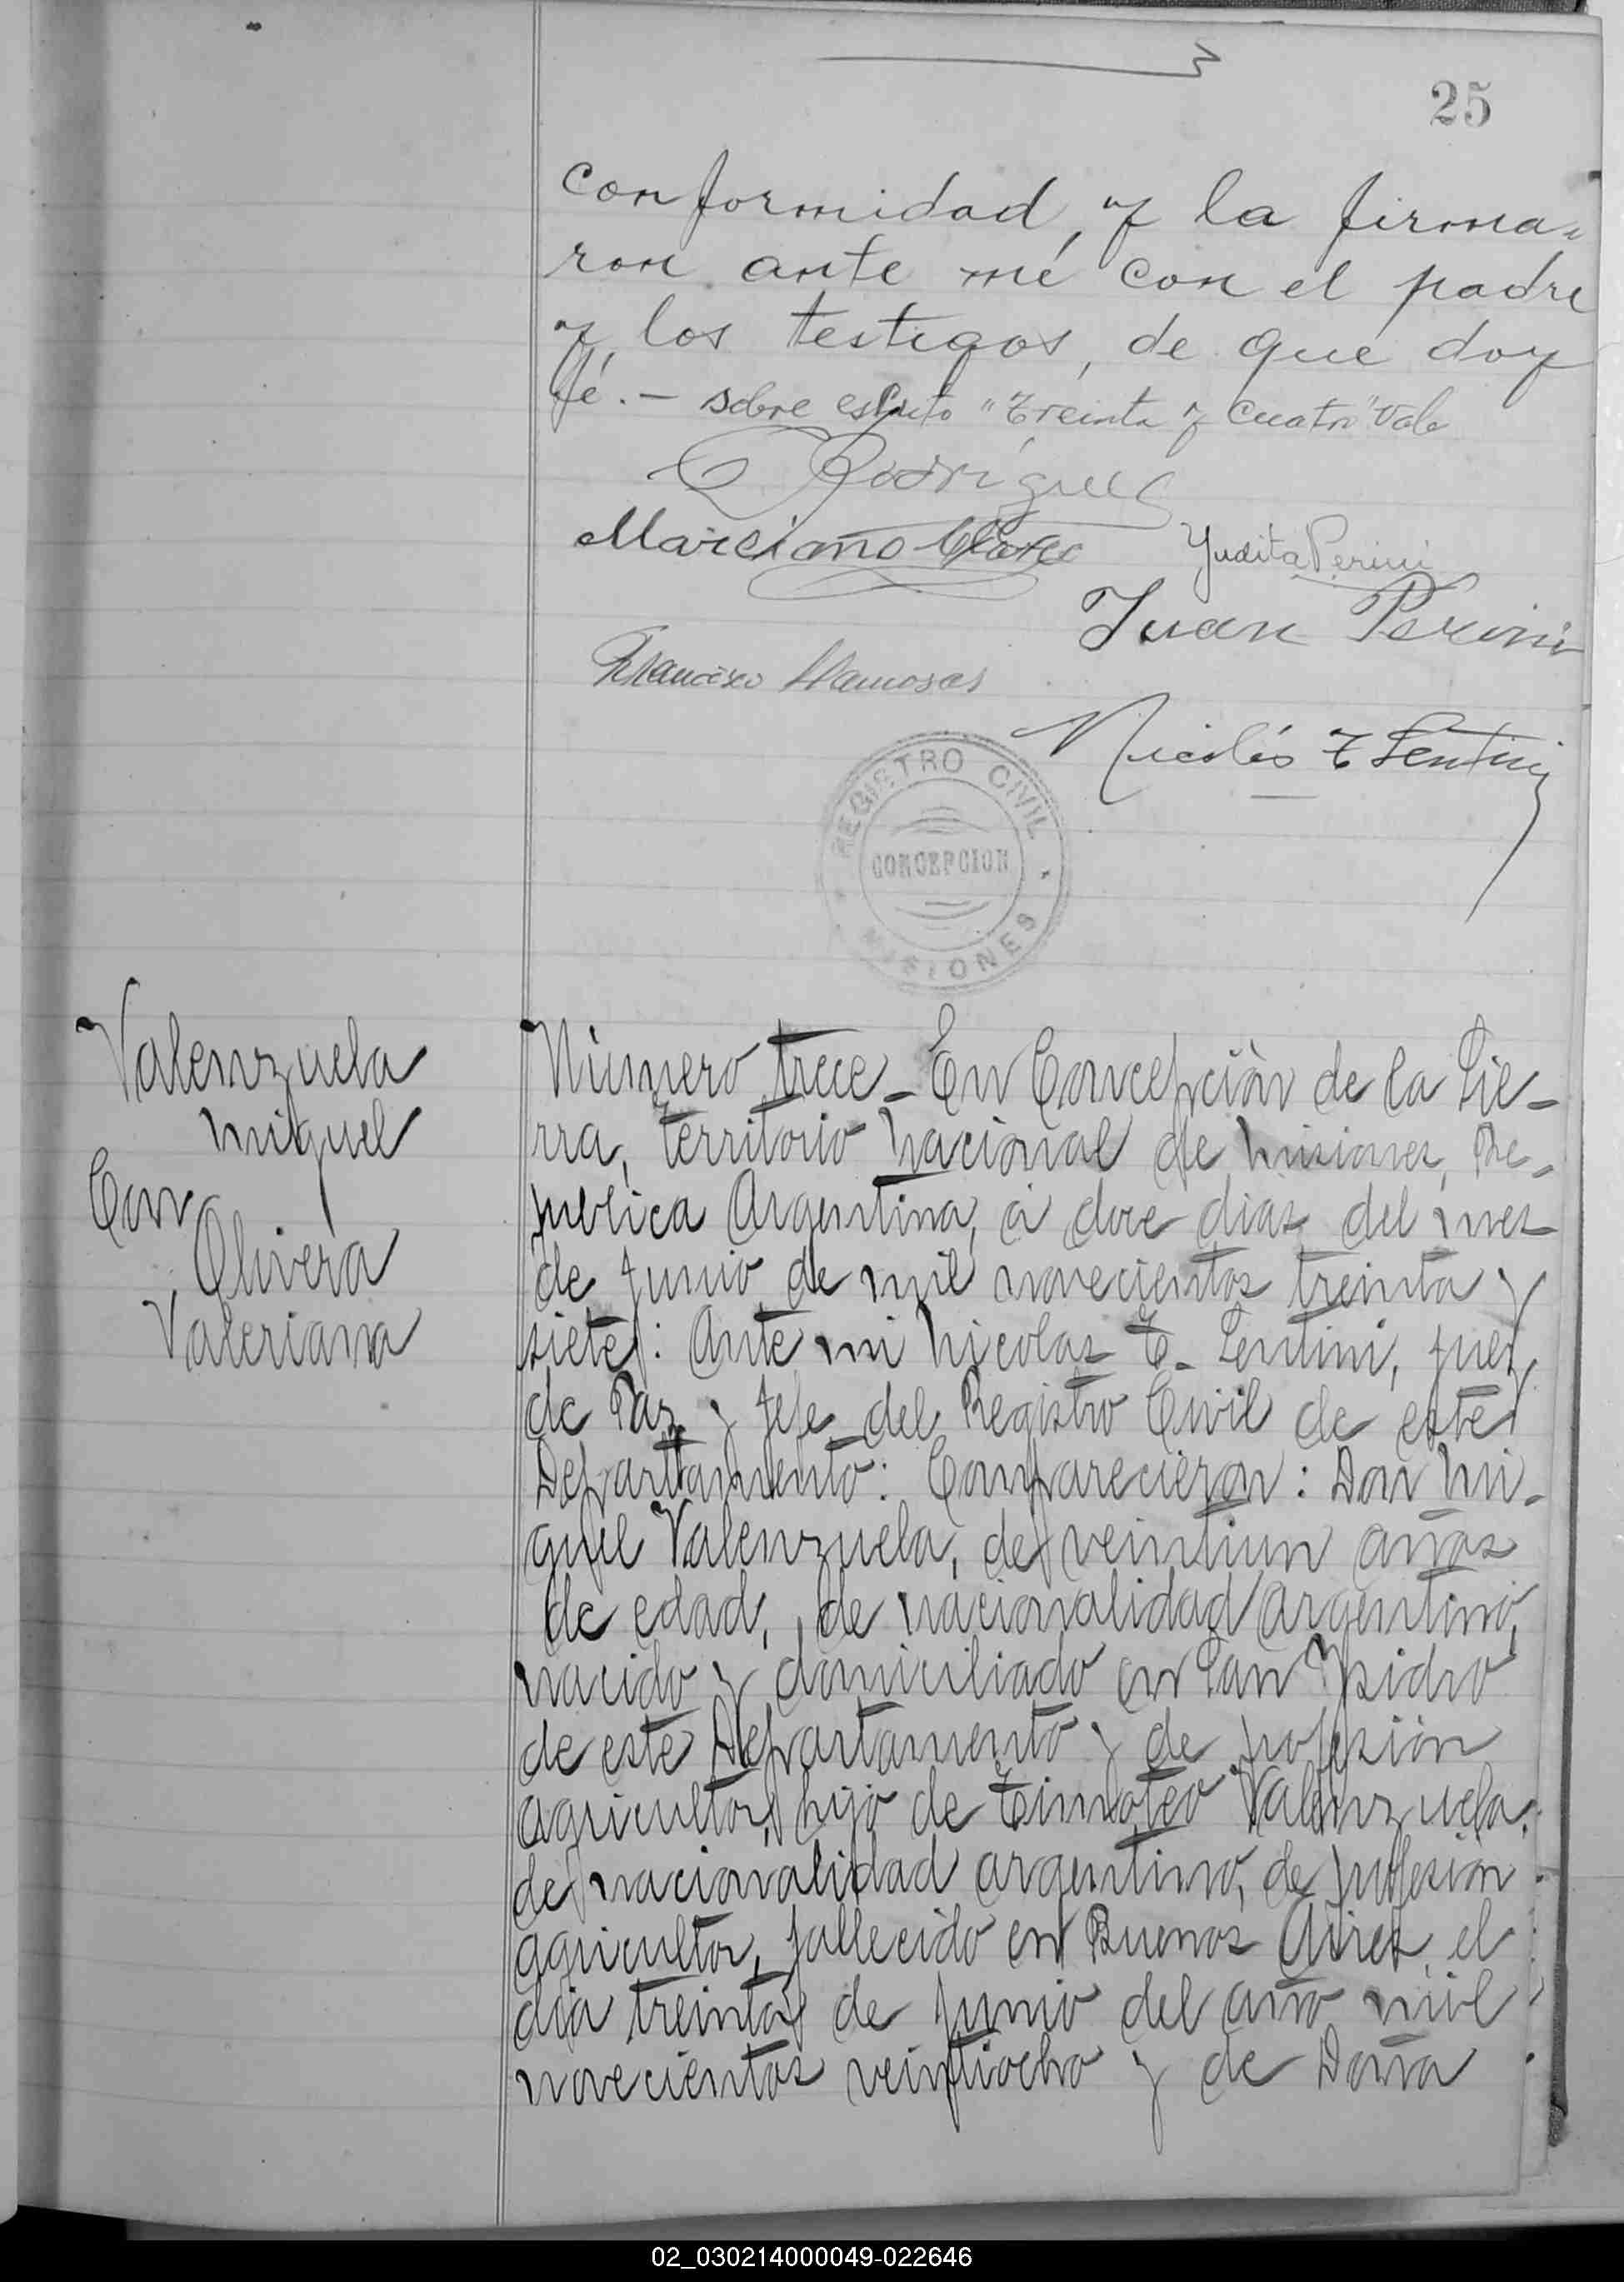 25
conformidad, y la firma-
ron ante mé con el padre
y los testigos, de que doy
fé.- sobre escrito "treinta y cuatro" Vale
Rodriguez
Marciano
Yudita Perini
Juan Perini
Francisco Llamosas
Nicolás T Sentini
REGISTRO CIVIL
CONCEPCION
MISIONES
Valenzuela
Miguel
Con
Olivera
Valeriana
Número trece - En Concepción de la Sie-
rra, territorio Nacional de Misiones, Re-
publica Argentina, á doce dias del mes
de Junio de mil novecientos treinta y
siete: Ante mi Nicolas T. Sentini, Juez
de Paz y Jefe del Registro Civil de este
Departtamento: Comparecieron: Don Mi-
guel Valenzuela, de veintiun años
de edad, de nacionalidad argentino,
nacido y domiciliado en San Ysidro
de este Departamento y de profesión
agricultor, hijo de Timoteo Valenzuela,
de nacionalidad argentino, de profesion
agricultor, fallecido en Buenos Aires, el
dia treinta de Junio del año mil
novecientos veintiocho y de Doña
02_030214000049-022646